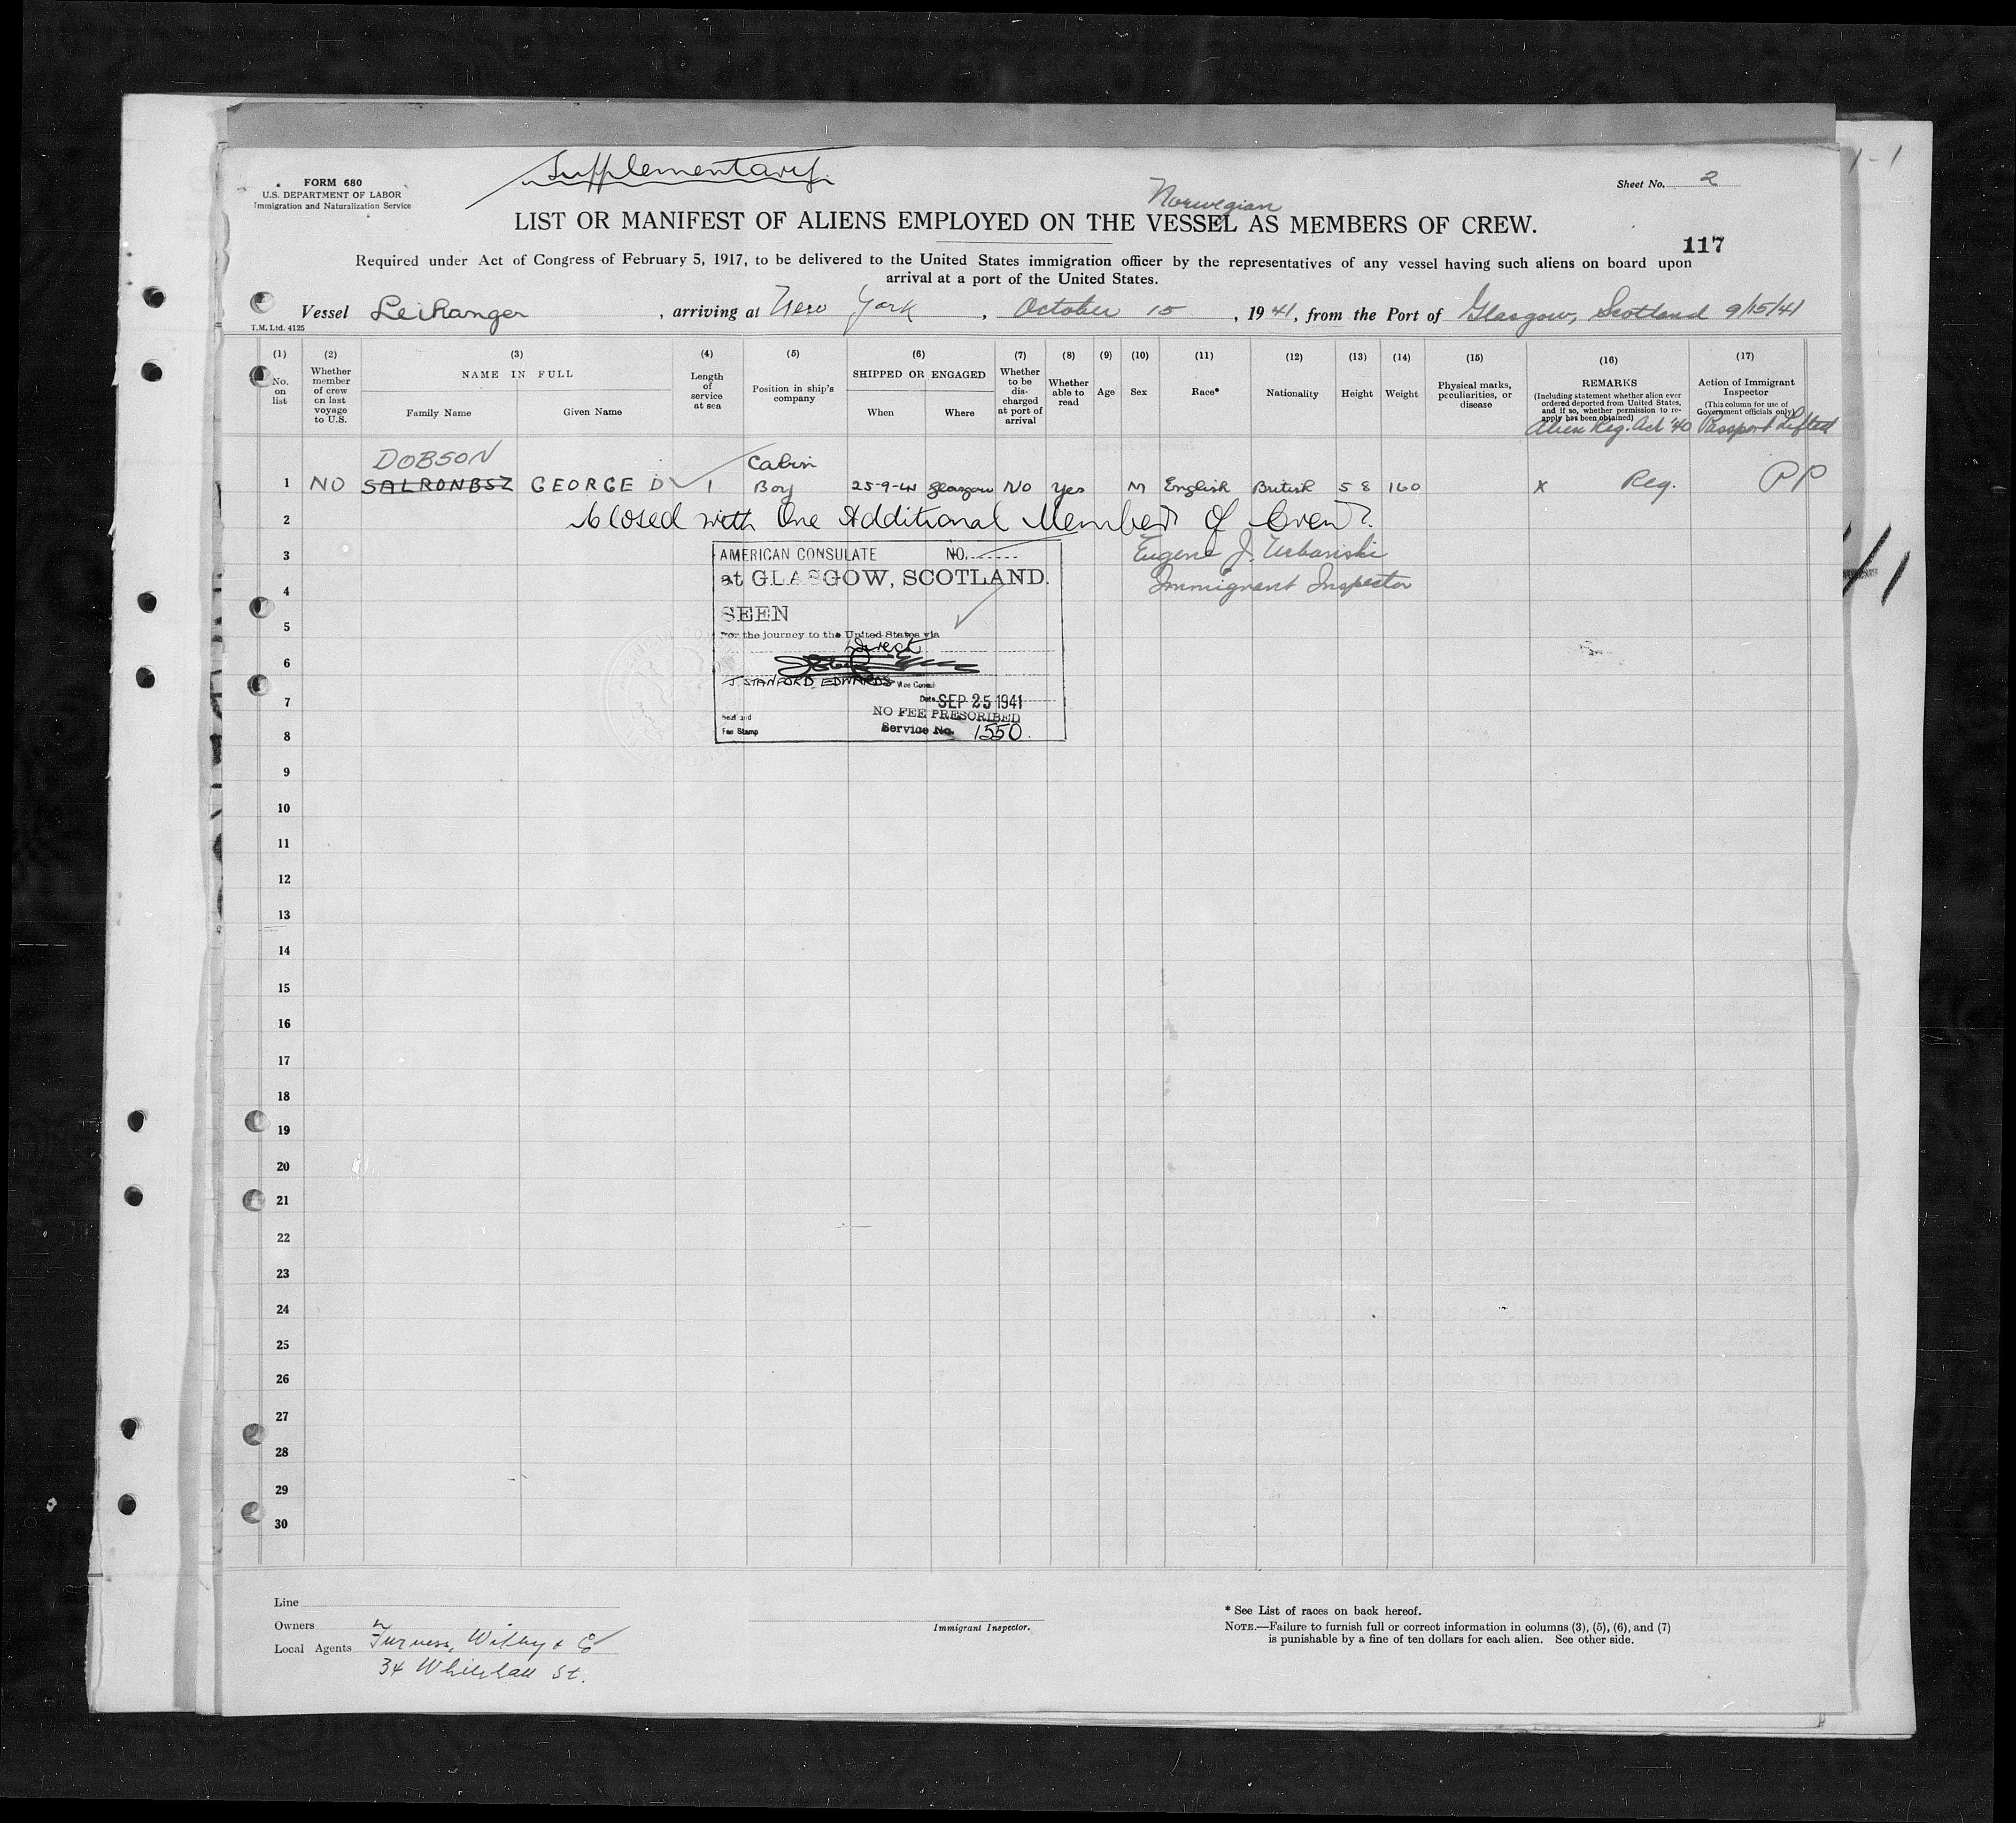 Supplementary
FORM 680
U.S. DEPARTMENT OF LABOR
Immigration and Naturalization Service
Sheet No. 2
Norwegian
LIST OR MANIFEST OF ALIENS EMPLOYED ON THE VESSEL AS MEMBERS OF CREW.
117
Required under Act of Congress of February 5, 1917, to be delivered to the United States immigration officer by the representatives of any vessel having such aliens on board upon
arrival at a port of the United States.
Vessel Leikanger, arriving at New York, October 15, 1941, from the Port of Glasgow, Scotland 9/15/41
T.M. Ltd. 4125
(1) (2) (3) (4) (5) (6) (7) (8) (9) (10) (11) (12) (13) (14) (15) (16) (17)
No. on list
Whether member of crew on last voyage to U.S.
NAME IN FULL
Family Name
Given Name
Length of service at sea
Position in ship's company
SHIPPED OR ENGAGED
When
Where
Whether to be discharged at port of arrival
Whether able to read
Age
Sex
Race*
Nationality
Height
Weight
Physical marks, peculiarities, or disease
REMARKS
(Including statement whether alien ever ordered deported from United States, and if so, whether permission to re-apply has been obtained)
Alien Reg. Act '40
Action of Immigrant Inspector
(This column for use of Government officials only)
Passport Lifted
DOBSON
1 NO SALRONBSZ GEORGE D 1 Cabin Boy 25-9-41 Glasgow NO Yes M English British 5 8 160 x Reg. PP
2 Closed with One Additional Member of Crew.
3 Eugene J. Urbanski
4 Immigrant Inspector
AMERICAN CONSULATE NO.
at GLASGOW, SCOTLAND.
SEEN
For the journey to the United States via
Direct
J. STANFORD EDWARDS Vice Consul
Date SEP 25 1941
NO FEE PRESCRIBED
Seal and
Fee Stamp
Service No. 1550
5
6
7
8
9
10
11
12
13
14
15
16
17
18
19
20
21
22
23
24
25
26
27
28
29
30
Line
Owners
Local Agents Furness, Withy & Co
34 Whitehall St.
Immigrant Inspector.
* See List of races on back hereof.
NOTE.—Failure to furnish full or correct information in columns (3), (5), (6), and (7)
is punishable by a fine of ten dollars for each alien. See other side.